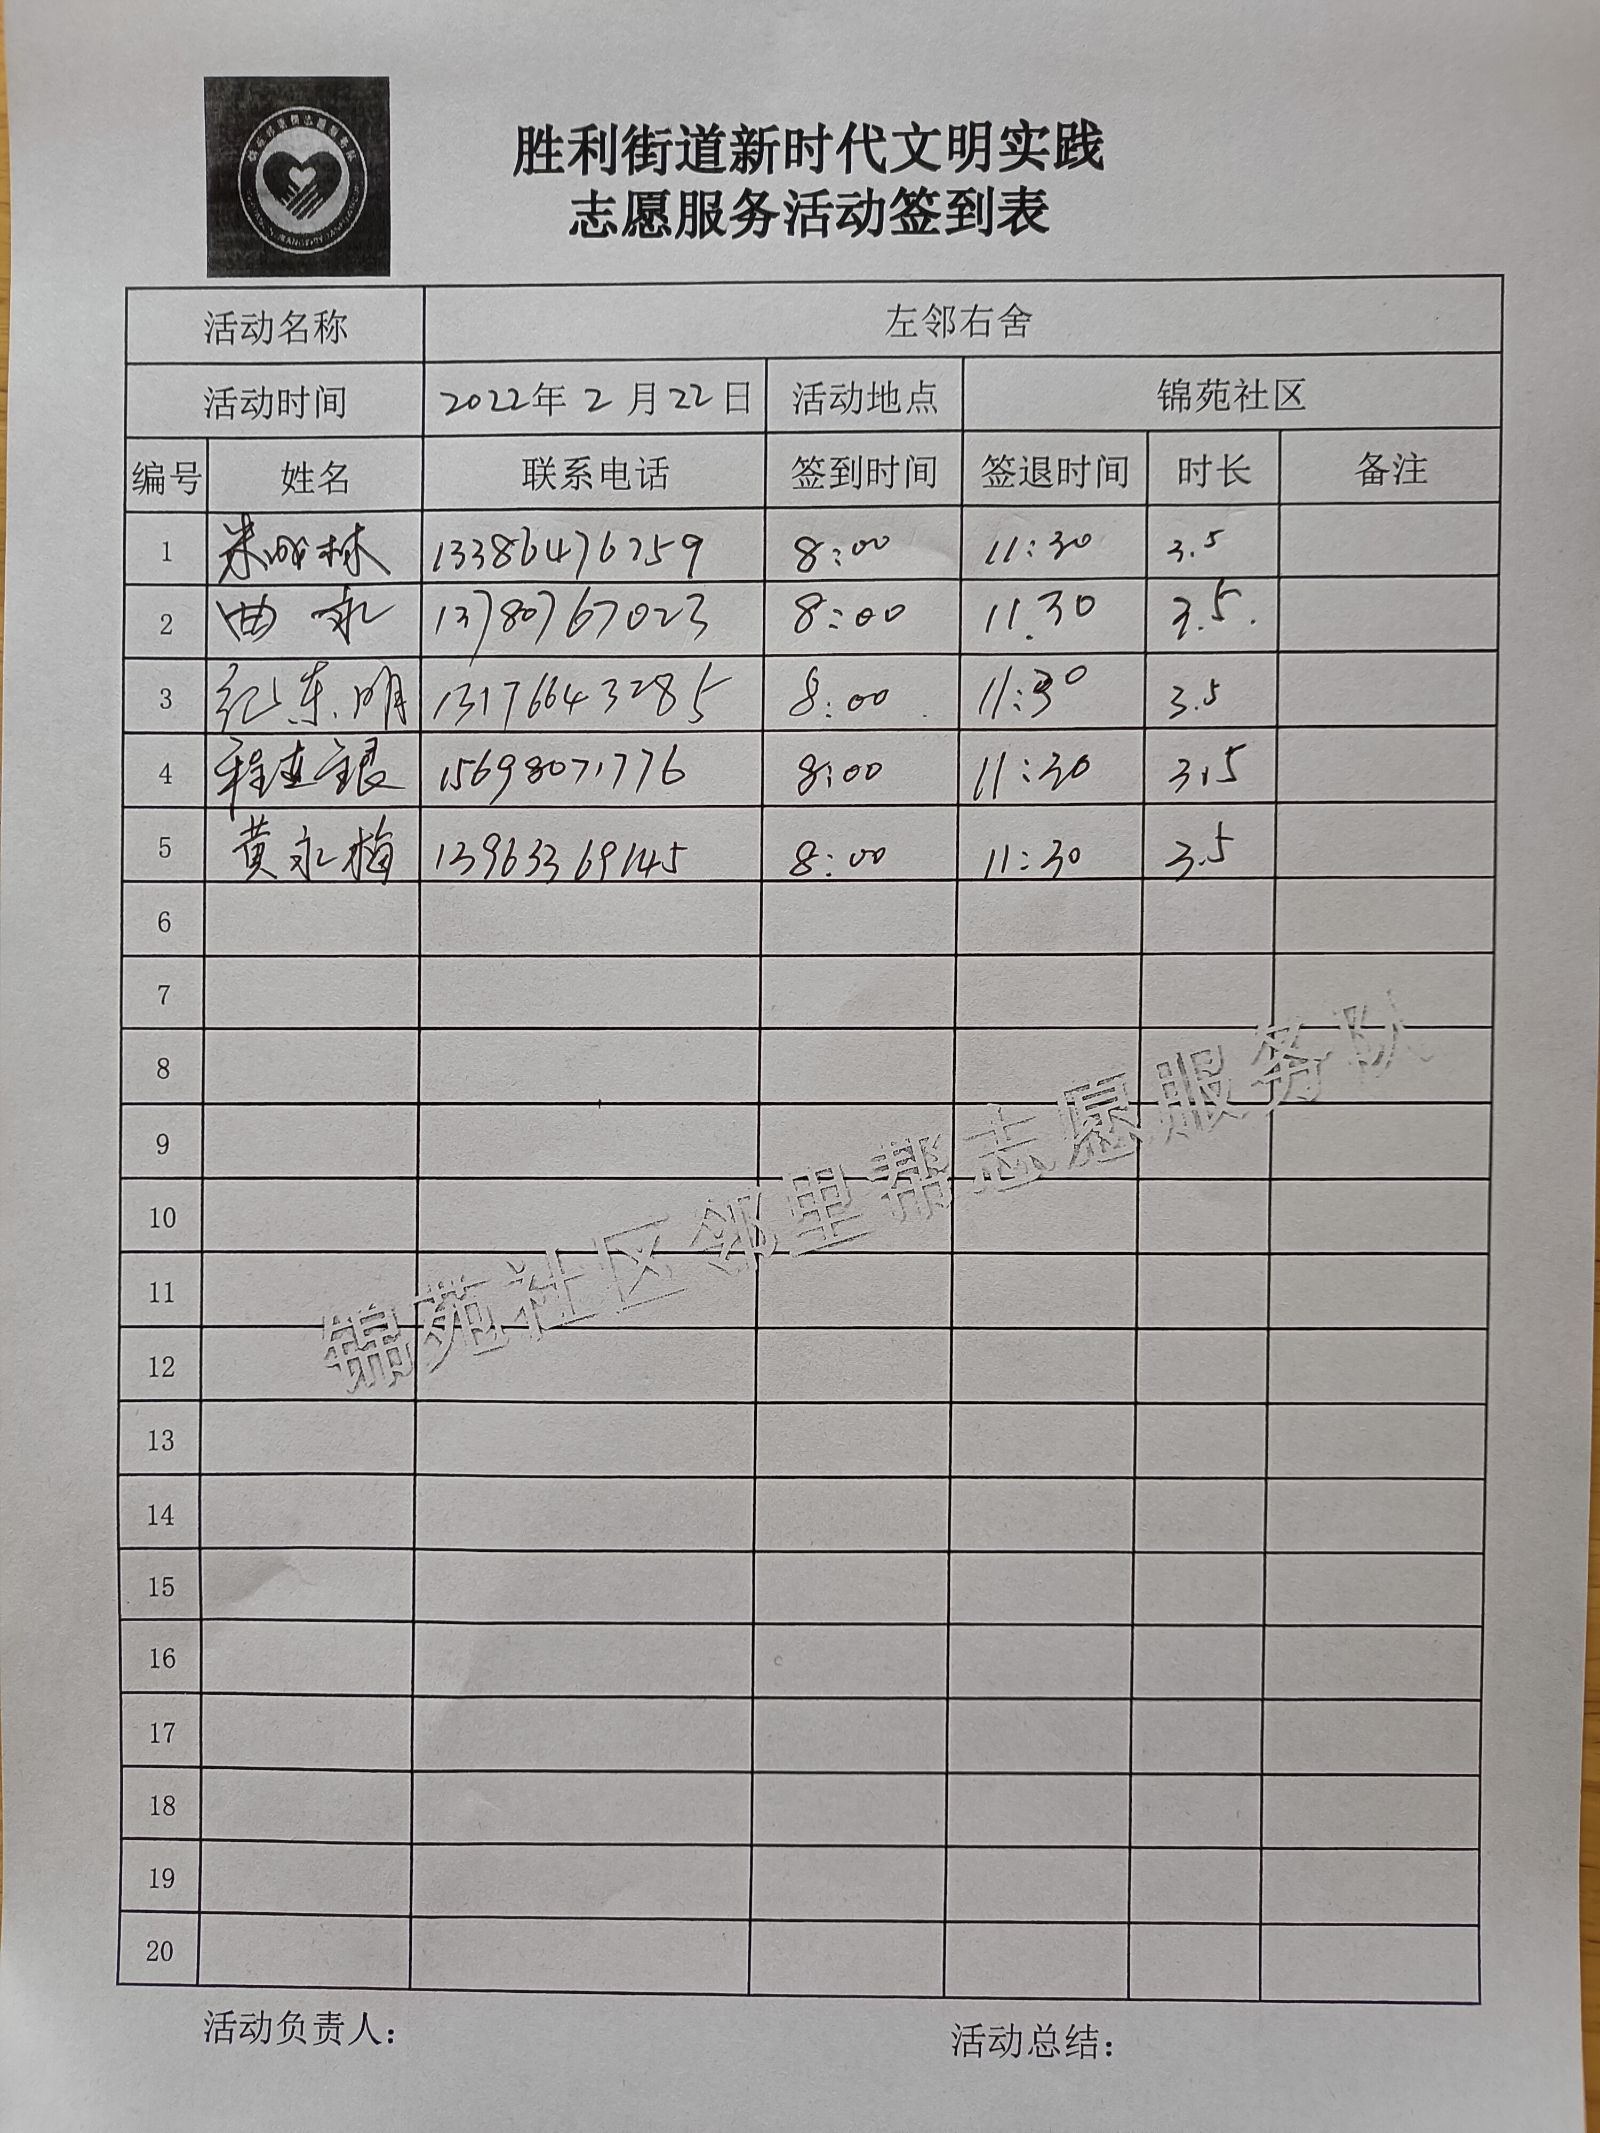 胜利街道新时代文明实践
志愿服务活动签到表
活动名称 左邻右舍
活动时间 2022年 2 月 22 日 活动地点 锦苑社区
编号 姓名 联系电话 签到时间 签退时间 时长 备注
1 林 13386476259 8:00 11:30 3.5
2 曲永 13780767023 8:00 11.30 3.5.
3 纪东明 13176643285 8:00 11:30 3.5
4 程连银 15698071776 8:00 11:30 3.5
5 黄永梅 13963369145 8:00 11:30 3.5
6
7
8
9
10
11
12
13
14
15
16
17
18
19
20
锦苑社区邻里帮志愿服务队
活动负责人：
活动总结：